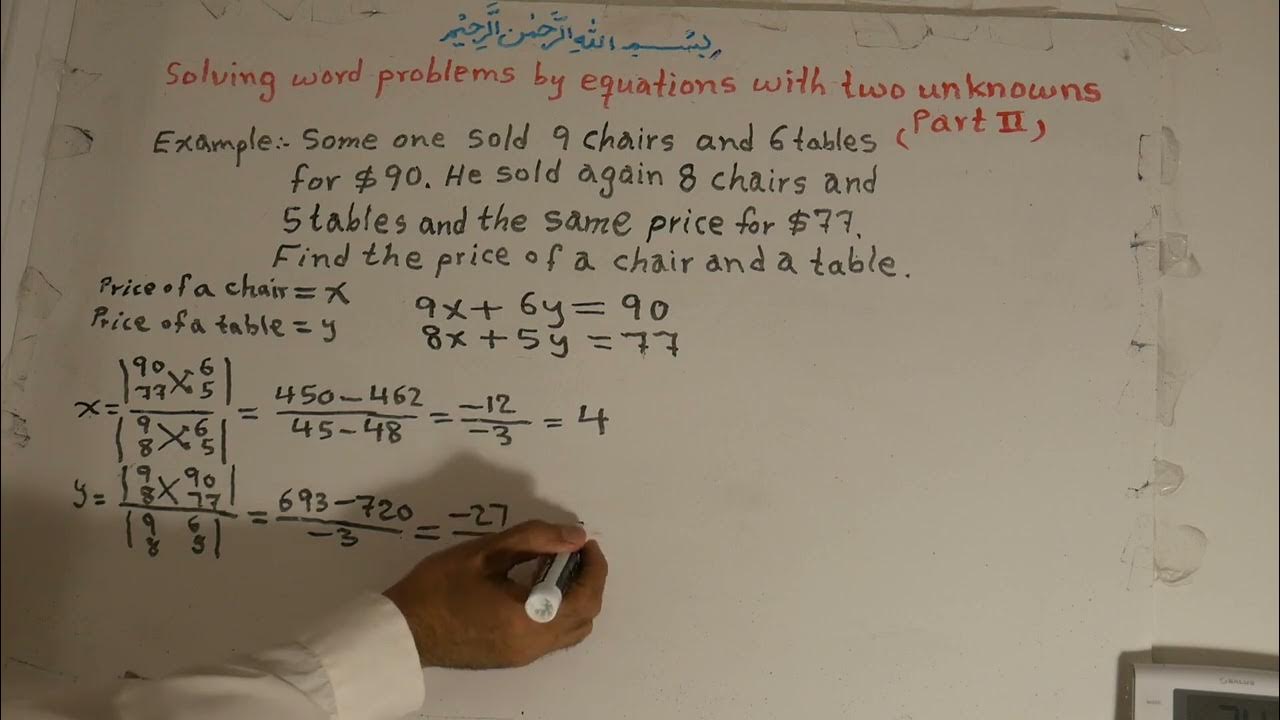 بِسْمِ اللهِ الرَّحْمٰنِ الرَّحِيْمِ
Solving word problems by equations with two unknowns
(Part II)
Example:- Some one sold 9 chairs and 6 tables
for $90. He sold again 8 chairs and
5 tables and the same price for $77.
Find the price of a chair and a table.
Price of a chair = x
Price of a table = y
9x + 6y = 90
8x + 5y = 77
x = |90 6 77 5| / |9 6 8 5| = 450 - 462 / 45 - 48 = -12 / -3 = 4
y = |9 90 8 77| / |9 6 8 5| = 693 - 720 / -3 = -27